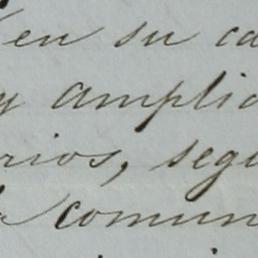 en su ca
y amplia
rios, segu
comun